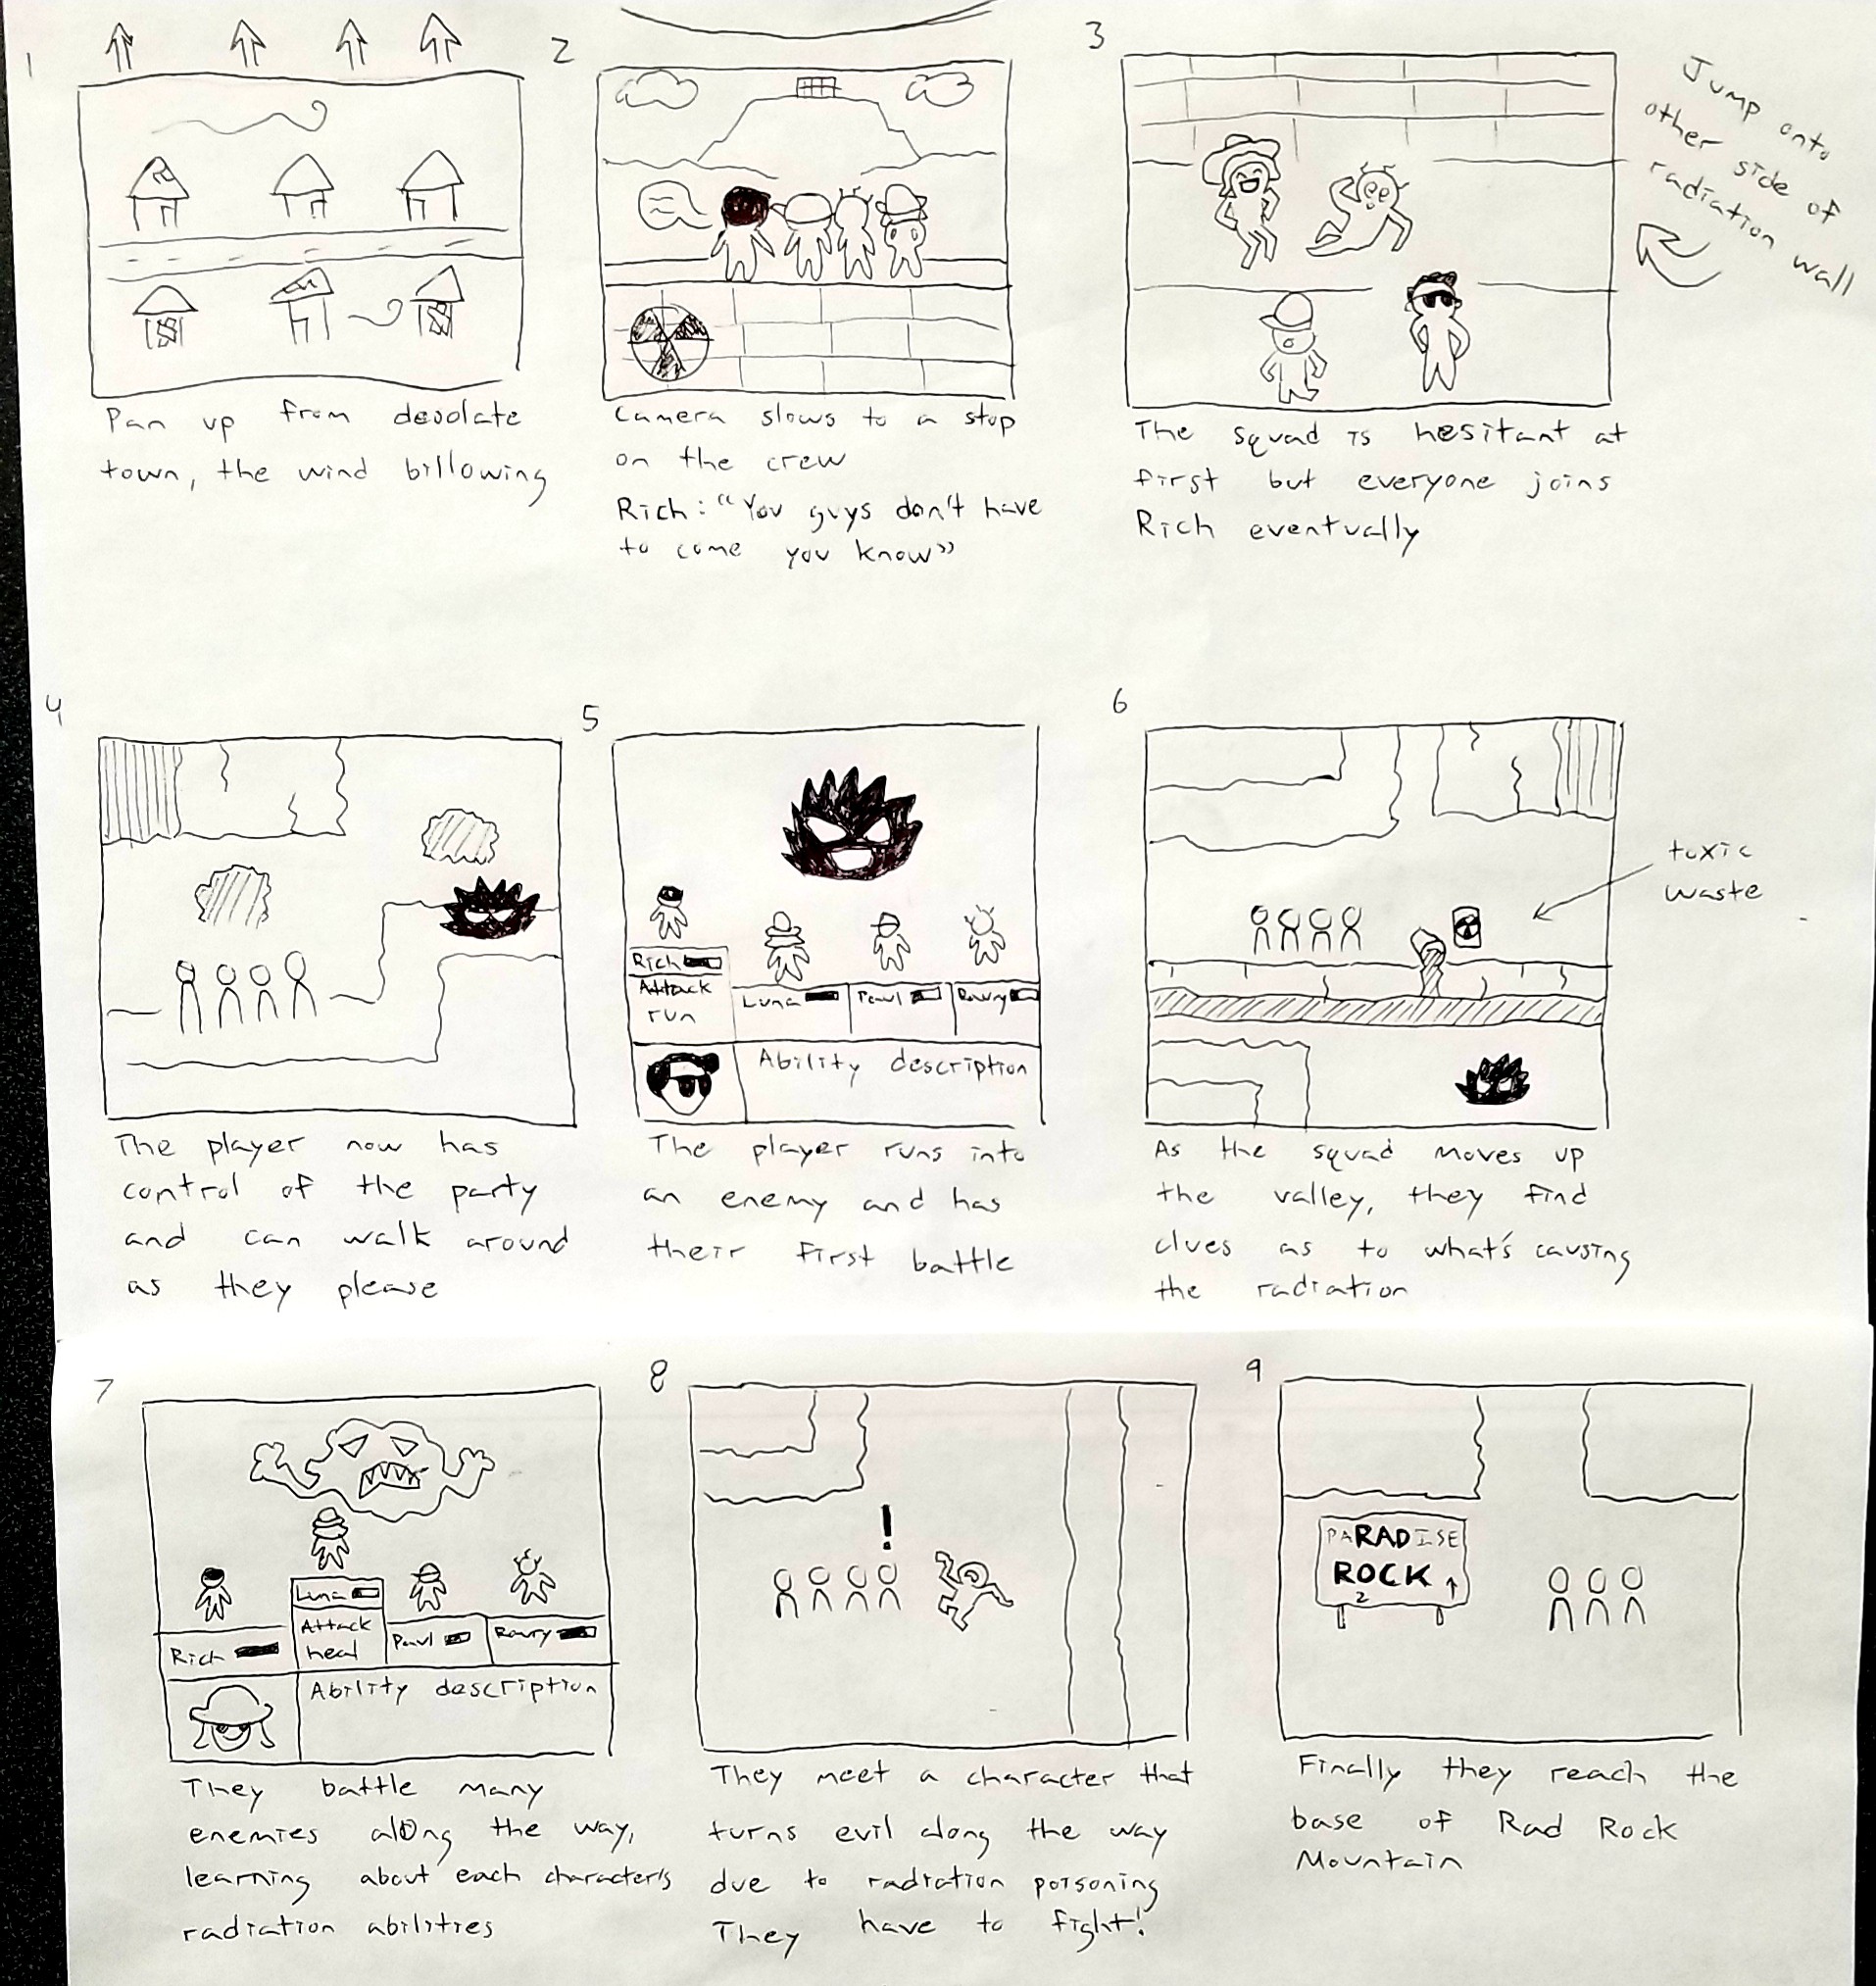 1
Pan up from desolate
town, the wind billowing
2
Camera slows to a stop
on the crew
Rich: "You guys don't have
to come you know"
3
The squad is hesitant at
first but everyone joins
Rich eventually
Jump onto
other side of
radiation wall
4
The player now has
control of the party
and can walk around
as they please
5
Rich
Attack
run
Luna
Paul
Rowry
Ability description
The player runs into
an enemy and has
their first battle
6
toxic
waste
As the squad moves up
the valley, they find
clues as to what's causing
the radiation
7
Luna
Attack
heal
Rich
Paul
Rowry
Ability description
They battle many
enemies along the way,
learning about each character's
radiation abilities
8
!
They meet a character that
turns evil along the way
due to radiation poisoning
They have to fight!
9
PARADISE
ROCK
2
Finally they reach the
base of Rad Rock
Mountain